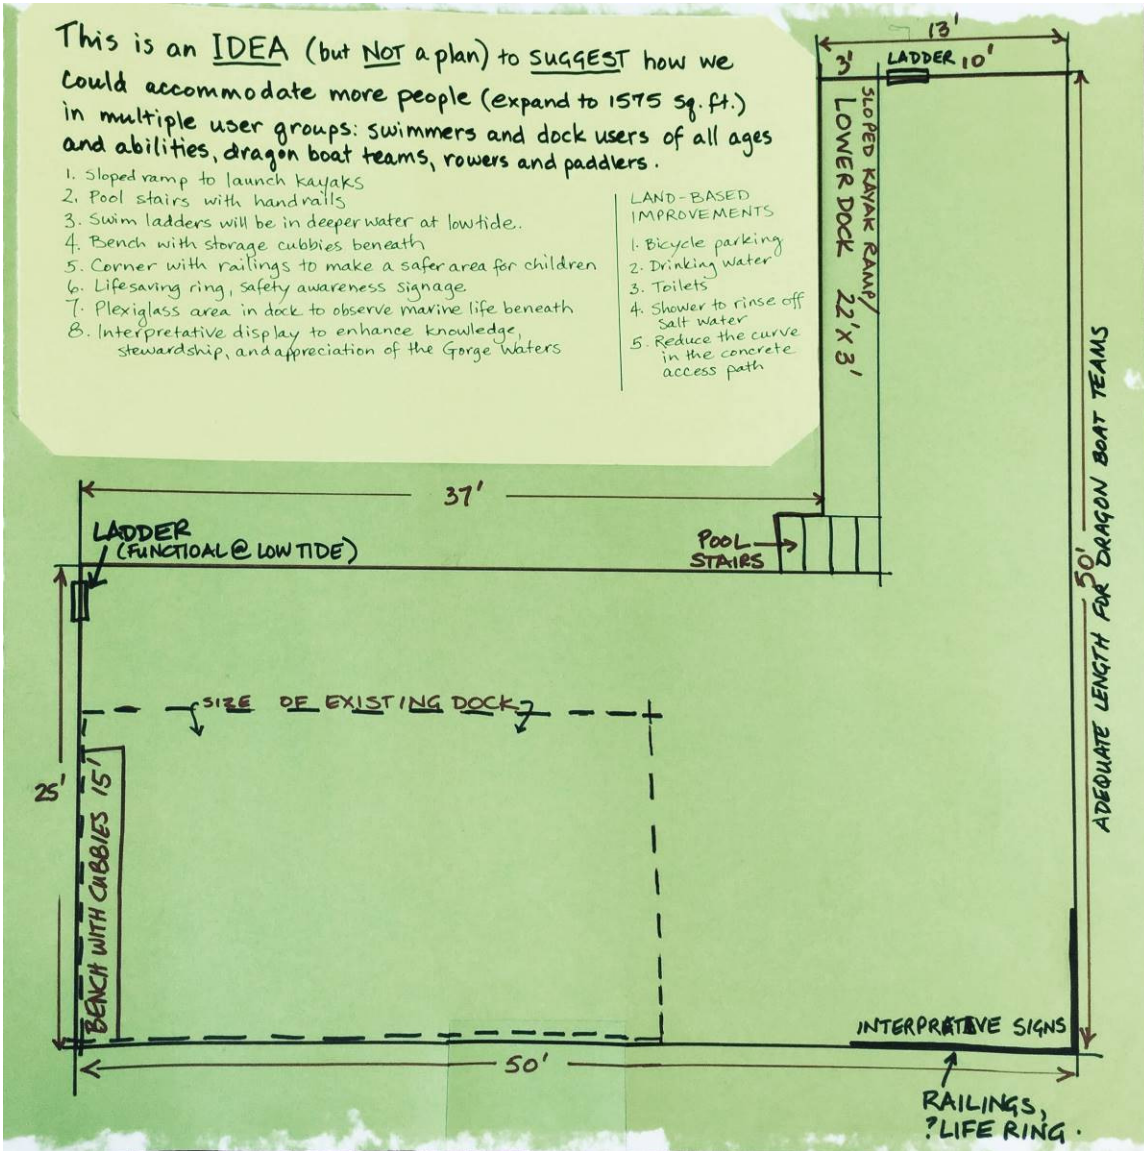 This is an IDEA (but NOT a plan) to SUGGEST how we
could accommodate more people (expand to 1575 sq. ft.)
in multiple user groups: swimmers and dock users of all ages
and abilities, dragon boat teams, rowers and paddlers.
1. Sloped ramp to launch kayaks
2. Pool stairs with handrails
3. Swim ladders will be in deeper water at low tide.
4. Bench with storage cubbies beneath
5. Corner with railings to make a safer area for children
6. Lifesaving ring, safety awareness signage
7. Plexiglass area in dock to observe marine life beneath
8. Interpretative display to enhance knowledge,
stewardship, and appreciation of the Gorge Waters
LAND-BASED
IMPROVEMENTS
1. Bicycle parking
2. Drinking water
3. Toilets
4. Shower to rinse off
Salt water
5. Reduce the curve
in the concrete
access path
13'
3'
LADDER 10'
SLOPED KAYAK RAMP/
LOWER DOCK 22' X 3'
37'
LADDER
(FUNCTIOAL @ LOW TIDE)
POOL
STAIRS
50'
ADEQUATE LENGTH FOR DRAGON BOAT TEAMS
SIZE OF EXISTING DOCK
25'
BENCH WITH CUBBIES 15'
INTERPRETATIVE SIGNS
50'
RAILINGS,
?LIFE RING.